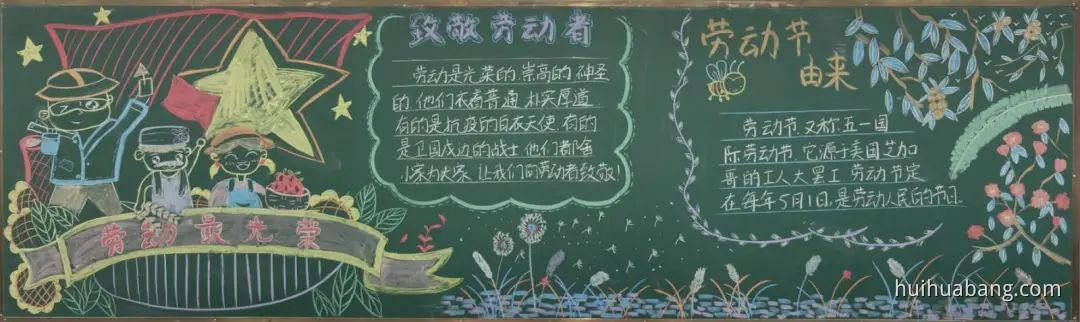 劳动最光荣
致敬劳动者
劳动是光荣的,崇高的,神圣
的,他们衣着普通,朴实厚道
有的是抗疫的白衣天使,有的
是卫国戍边的战士,他们都舍
小家为大家,让我们向劳动者致敬!
劳动节
由来
劳动节,又称五一国
际劳动节,它源于美国芝加
哥的工人大罢工,劳动节定
在每年5月1日,是劳动人民的节日.
huihuabang.com